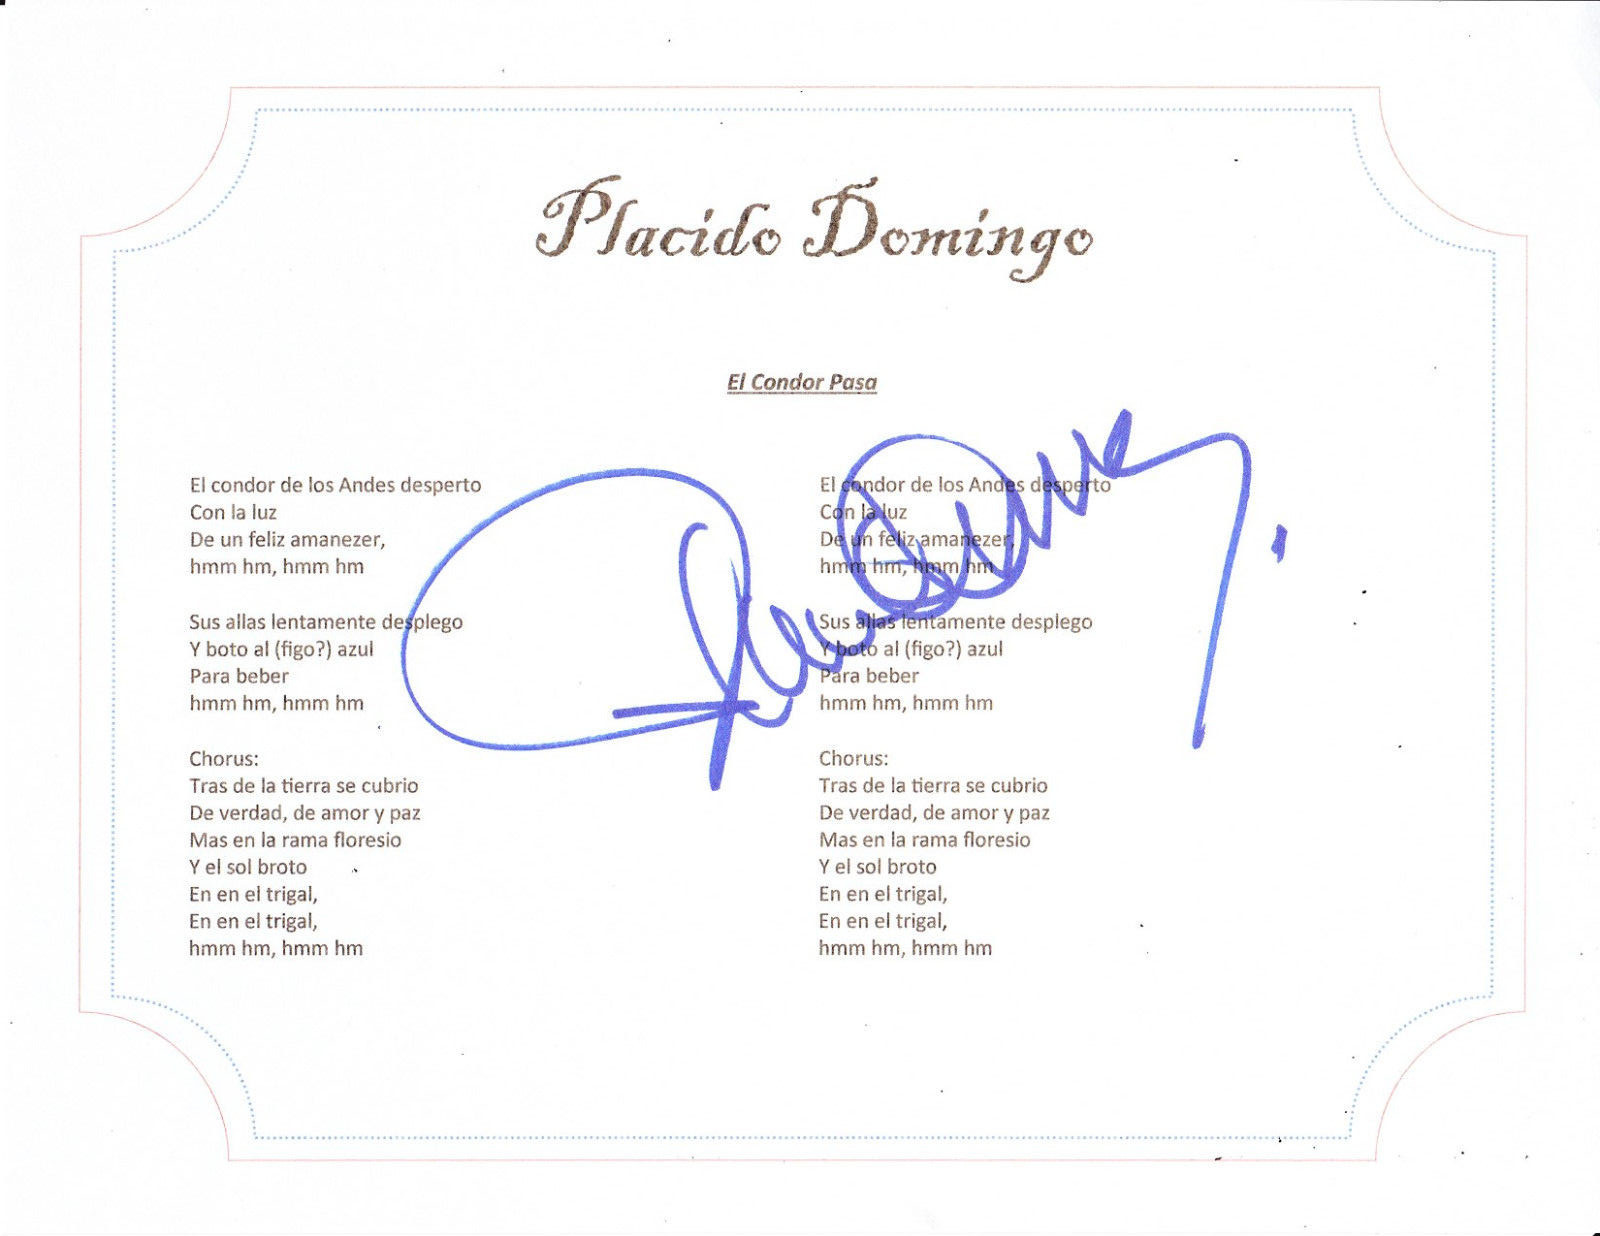 Placido Domingo
El Condor Pasa
El condor de los Andes desperto
Con la luz
De un feliz amanezer,
hmm hm, hmm hm
Sus allas lentamente desplego
Y boto al (figo?) azul
Para beber
hmm hm, hmm hm
Chorus:
Tras de la tierra se cubrio
De verdad, de amor y paz
Mas en la rama floresio
Y el sol broto
En en el trigal,
En en el trigal,
hmm hm, hmm hm
El condor de los Andes desperto
Con la luz
De un feliz amanezer,
hmm hm, hmm hm
Sus allas lentamente desplego
Y boto al (figo?) azul
Para beber
hmm hm, hmm hm
Chorus:
Tras de la tierra se cubrio
De verdad, de amor y paz
Mas en la rama floresio
Y el sol broto
En en el trigal,
En en el trigal,
hmm hm, hmm hm